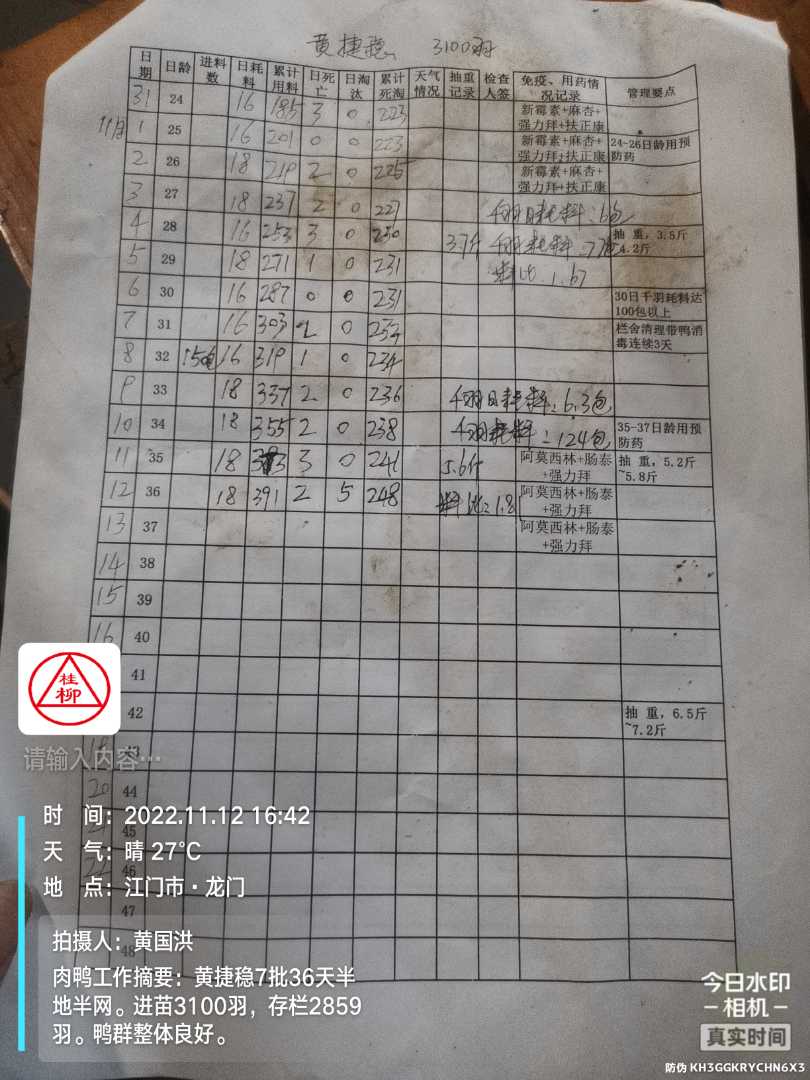 黄捷稳 3100羽
日期 日龄 进料数 日耗料 累计用料 日死亡 日淘汰 累计死淘 天气情况 抽重记录 检查人签 免疫、用药情况记录 管理要点
31 24 16 185 3 0 223 新霉素+麻杏+强力拜+扶正康
11月 1 25 16 201 0 0 223 新霉素+麻杏+强力拜+扶正康 24-26日龄用预防药
2 26 18 219 2 0 225 新霉素+麻杏+强力拜+扶正康
3 27 18 237 2 0 227 千羽日耗料:6包
4 28 16 253 3 0 230 3.7斤 千羽耗料 抽 重,3.5斤~4.2斤
5 29 18 271 1 0 231 料比:1.67
6 30 16 287 0 0 231 30日千羽耗料达100包以上
7 31 16 303 2 0 233 栏舍清理带鸭消毒连续3天
8 32 150包 16 319 1 0 234
9 33 18 337 2 0 236 千羽日耗料:6.3包
10 34 18 355 2 0 238 千羽耗料:124包 35-37日龄用预防药
11 35 18 373 3 0 241 5.6斤 阿莫西林+肠泰+强力拜 抽 重,5.2斤~5.8斤
12 36 18 391 2 5 248 料比:1.8 阿莫西林+肠泰+强力拜
13 37 阿莫西林+肠泰+强力拜
14 38
15 39
16 40
41
42 抽 重,6.5斤~7.2斤
43
20 44
45
46
47
48
桂柳
请输入内容…
时 间:2022.11.12 16:42
天 气:晴 27℃
地 点:江门市·龙门
拍摄人:黄国洪
肉鸭工作摘要:黄捷稳7批36天半
地半网。进苗3100羽,存栏2859
羽。鸭群整体良好。
今日水印
-相机-
真实时间
防伪 KH3GGKRYCHN6X3